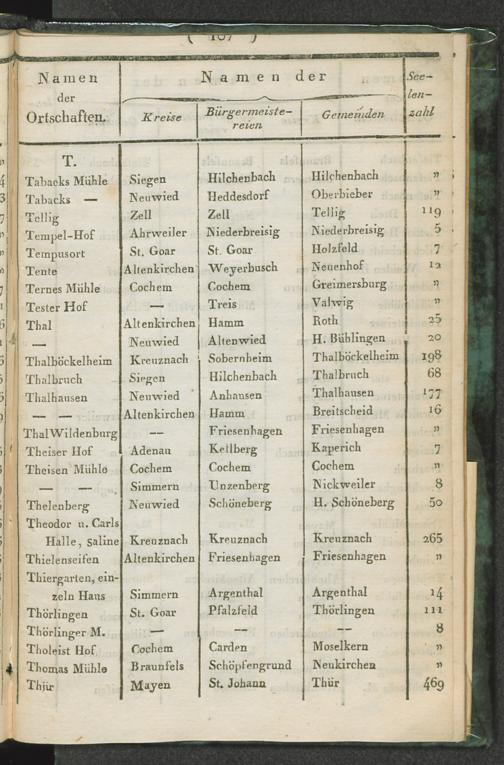 ( 187 )
Namen der Ortschaften. | Namen der | See-len-zahl
Kreise | Bürgermeiste-reien | Gemeinden
T.
Tabacks Mühle | Siegen | Hilchenbach | Hilchenbach | „
Tabacks — | Neuwied | Heddesdorf | Oberbieber | „
Tellig | Zell | Zell | Tellig | 119
Tempel-Hof | Ahrweiler | Niederbreisig | Niederbreisig | 5
Tempusort | St. Goar | St. Goar | Holzfeld | 7
Tente | Altenkirchen | Weyerbusch | Neuenhof | 12
Ternes Mühle | Cochem | Cochem | Greimersburg | „
Tester Hof | — | Treis | Valwig | „
Thal | Altenkirchen | Hamm | Roth | 25
— | Neuwied | Altenwied | H. Bühlingen | 20
Thalböckelheim | Kreuznach | Sobernheim | Thalböckelheim | 198
Thalbruch | Siegen | Hilchenbach | Thalbruch | 68
Thalhausen | Neuwied | Anhausen | Thalhausen | 177
— — | Altenkirchen | Hamm | Breitscheid | 16
Thal Wildenburg | — | Friesenhagen | Friesenhagen | „
Theiser Hof | Adenau | Kellberg | Kaperich | 7
Theisen Mühle | Cochem | Cochem | Cochem | „
— — | Simmern | Unzenberg | Nickweiler | 8
Thelenberg | Neuwied | Schöneberg | H. Schöneberg | 50
Theodor u. Carls
Halle, Saline | Kreuznach | Kreuznach | Kreuznach | 265
Thielenseifen | Altenkirchen | Friesenhagen | Friesenhagen | „
Thiergarten, ein-
zeln Haus | Simmern | Argenthal | Argenthal | 14
Thörlingen | St. Goar | Pfalzfeld | Thörlingen | 111
Thörlinger M. | — | — | — | 8
Tholeist Hof | Cochem | Carden | Moselkern | „
Thomas Mühle | Braunfels | Schöpfengrund | Neukirchen | „
Thür | Mayen | St. Johann | Thür | 469